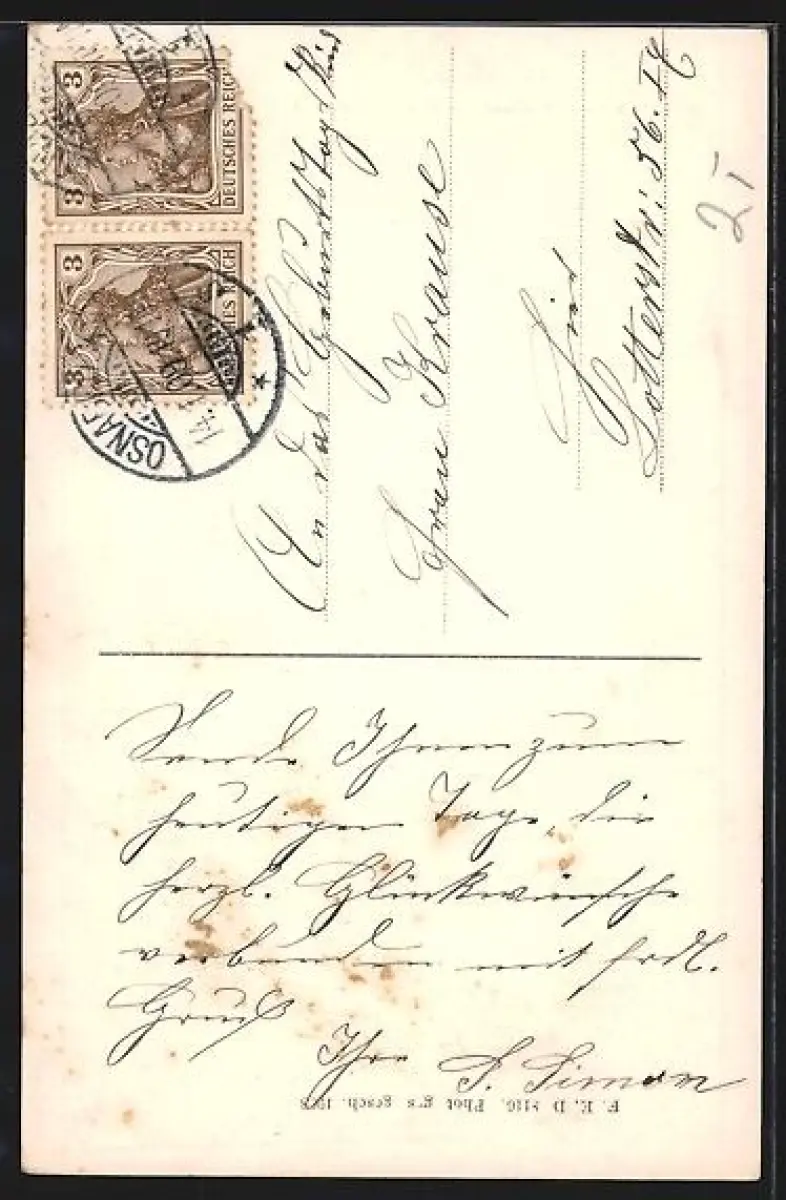 3
DEUTSCHES REICH
3
3
DEUTSCHES REICH
3
OSNA
14.
09
An das Geburtstagskind
Frau Krause
Hier
Lotterstr: 56. I E
Sende Ihnen zum
heutigen Tage, die
herzl. Glückwünsche
verbunden mit frdl.
Gruß
Ihre S. Simon
F. E. D 2116. Phot ges gesch. 1908